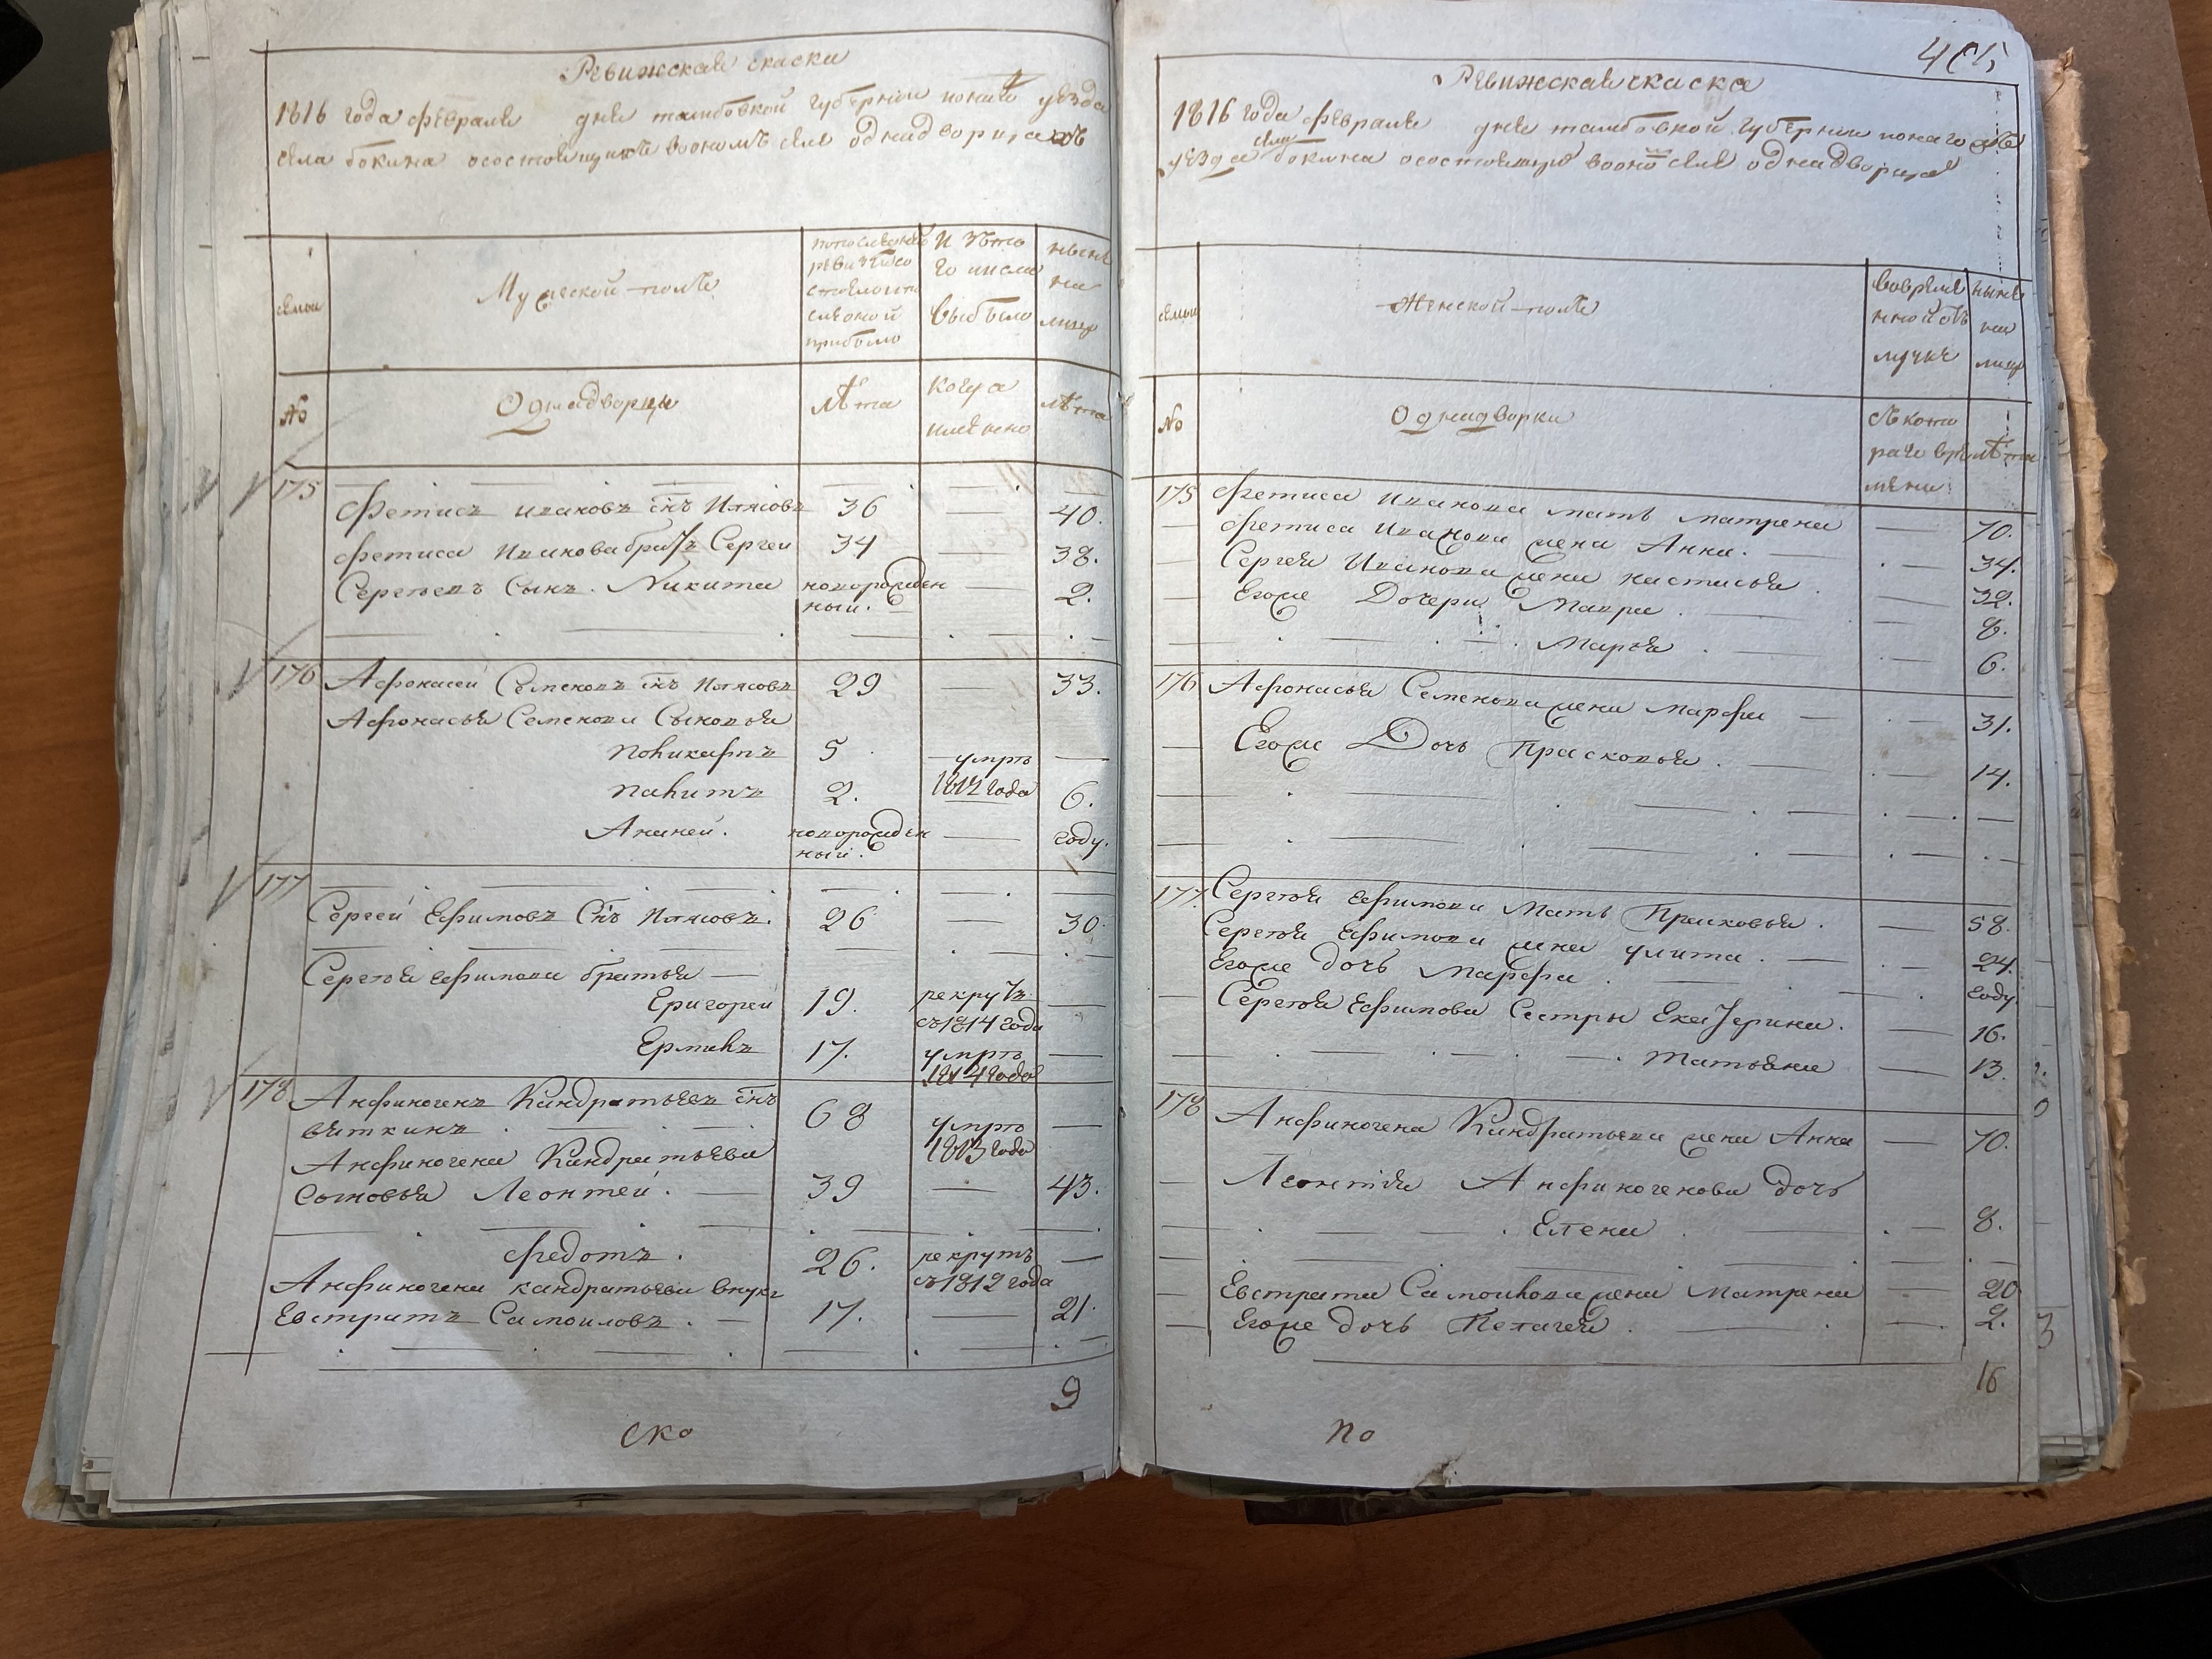 Ревижская скаски
1816 года февраля дня танбовкой губернии уезда
села бокина осостоящихъ воономъ селе однадворцахъ
семьи
Мужеской полъ
попоследней ревизiи состояло и после оной прибыло
И зъ того числа выбыло
ныне на лицо
№
Однадворцы
лѣта
когда имянно
лѣта
175
Фетисъ Ивановъ снъ Илясовъ 36 — 40.
Фетиса Иванова братъ Сергеи 34 — 38.
Сергеевъ Сынъ. Никита новорожден — 2.
ный.
176 Афонасеи Семеновъ снъ Илясовъ 29 — 33.
Афонасья Семенова Сыновья
Поликарпъ 5 умръ —
1812 года
Павитъ 2. 6.
Ананеи. новорожден — году.
ный.
177
Сергеи Ефимовъ Снъ Илясовъ. 26 — 30.
Сергея Ефимова братья —
Григореи 19. рекрутъ —
съ 1814 года
Ермилъ 17. умръ —
1814 года
178 Анфиногенъ Кандратьевъ снъ
вяткинъ. 68 умръ —
1813 года
Анфиногена Кандратьева
Сыновья Леонтеи. — 39 — 43.
Федотъ. 26. рекрутъ —
съ 1812 года
Анфиногена кандратьева внукъ
Евстратъ Самоиловъ. — 17. — 21.
9
ско
405
Ревижская скаска
1816 года февраля дня танбовкой губернии
уезда села бокина осостоящихъ воономъ селе однадворца
семьи
Женской полъ
вовремянной отлучке
ныне на лицо
№
Однадворки
съкотораго времени
лѣта
175 Фетиса Иванова мать матрена — 70.
— Фетиса Иванова жена Анна. — 34.
— Сергея Иванова жена настасья. — 32.
— Егоже Дочери Мавра — 8.
Марья — 6.
176 Афонасья Семенова жена марфа — 31.
— Егоже Дочь Прасковья. — 14.
177. Сергея Ефимова Мать Прасковья. — 58.
Сергея Ефимова жена улита. — 24.
Егоже дочь Марфа. году.
— Сергея Ефимова Сестры Екатерина. — 16.
Татьяна — 13.
178 Анфиногена Кандратьева жена Анна — 70.
— Леонтия Анфиногенова дочь
Елена — 8.
— Евстрата Самоилова жена Матрена — 20
— Егоже дочь Пелагея. — 2.
16
по